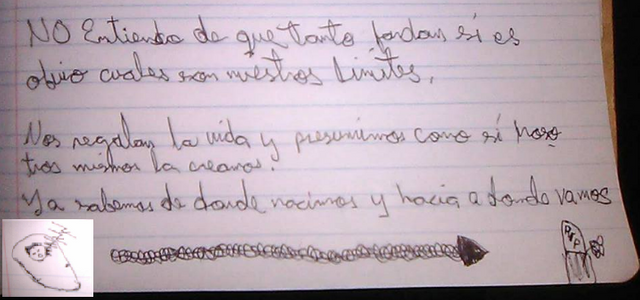 NO Entiendo de que tanto jordan si es
obvio cuales son nuestros limites.
Nos regalan la vida y presumimos como si noso
tros mismos la creamos.
Ya sabemos de donde nacimos y hacia a donde vamos